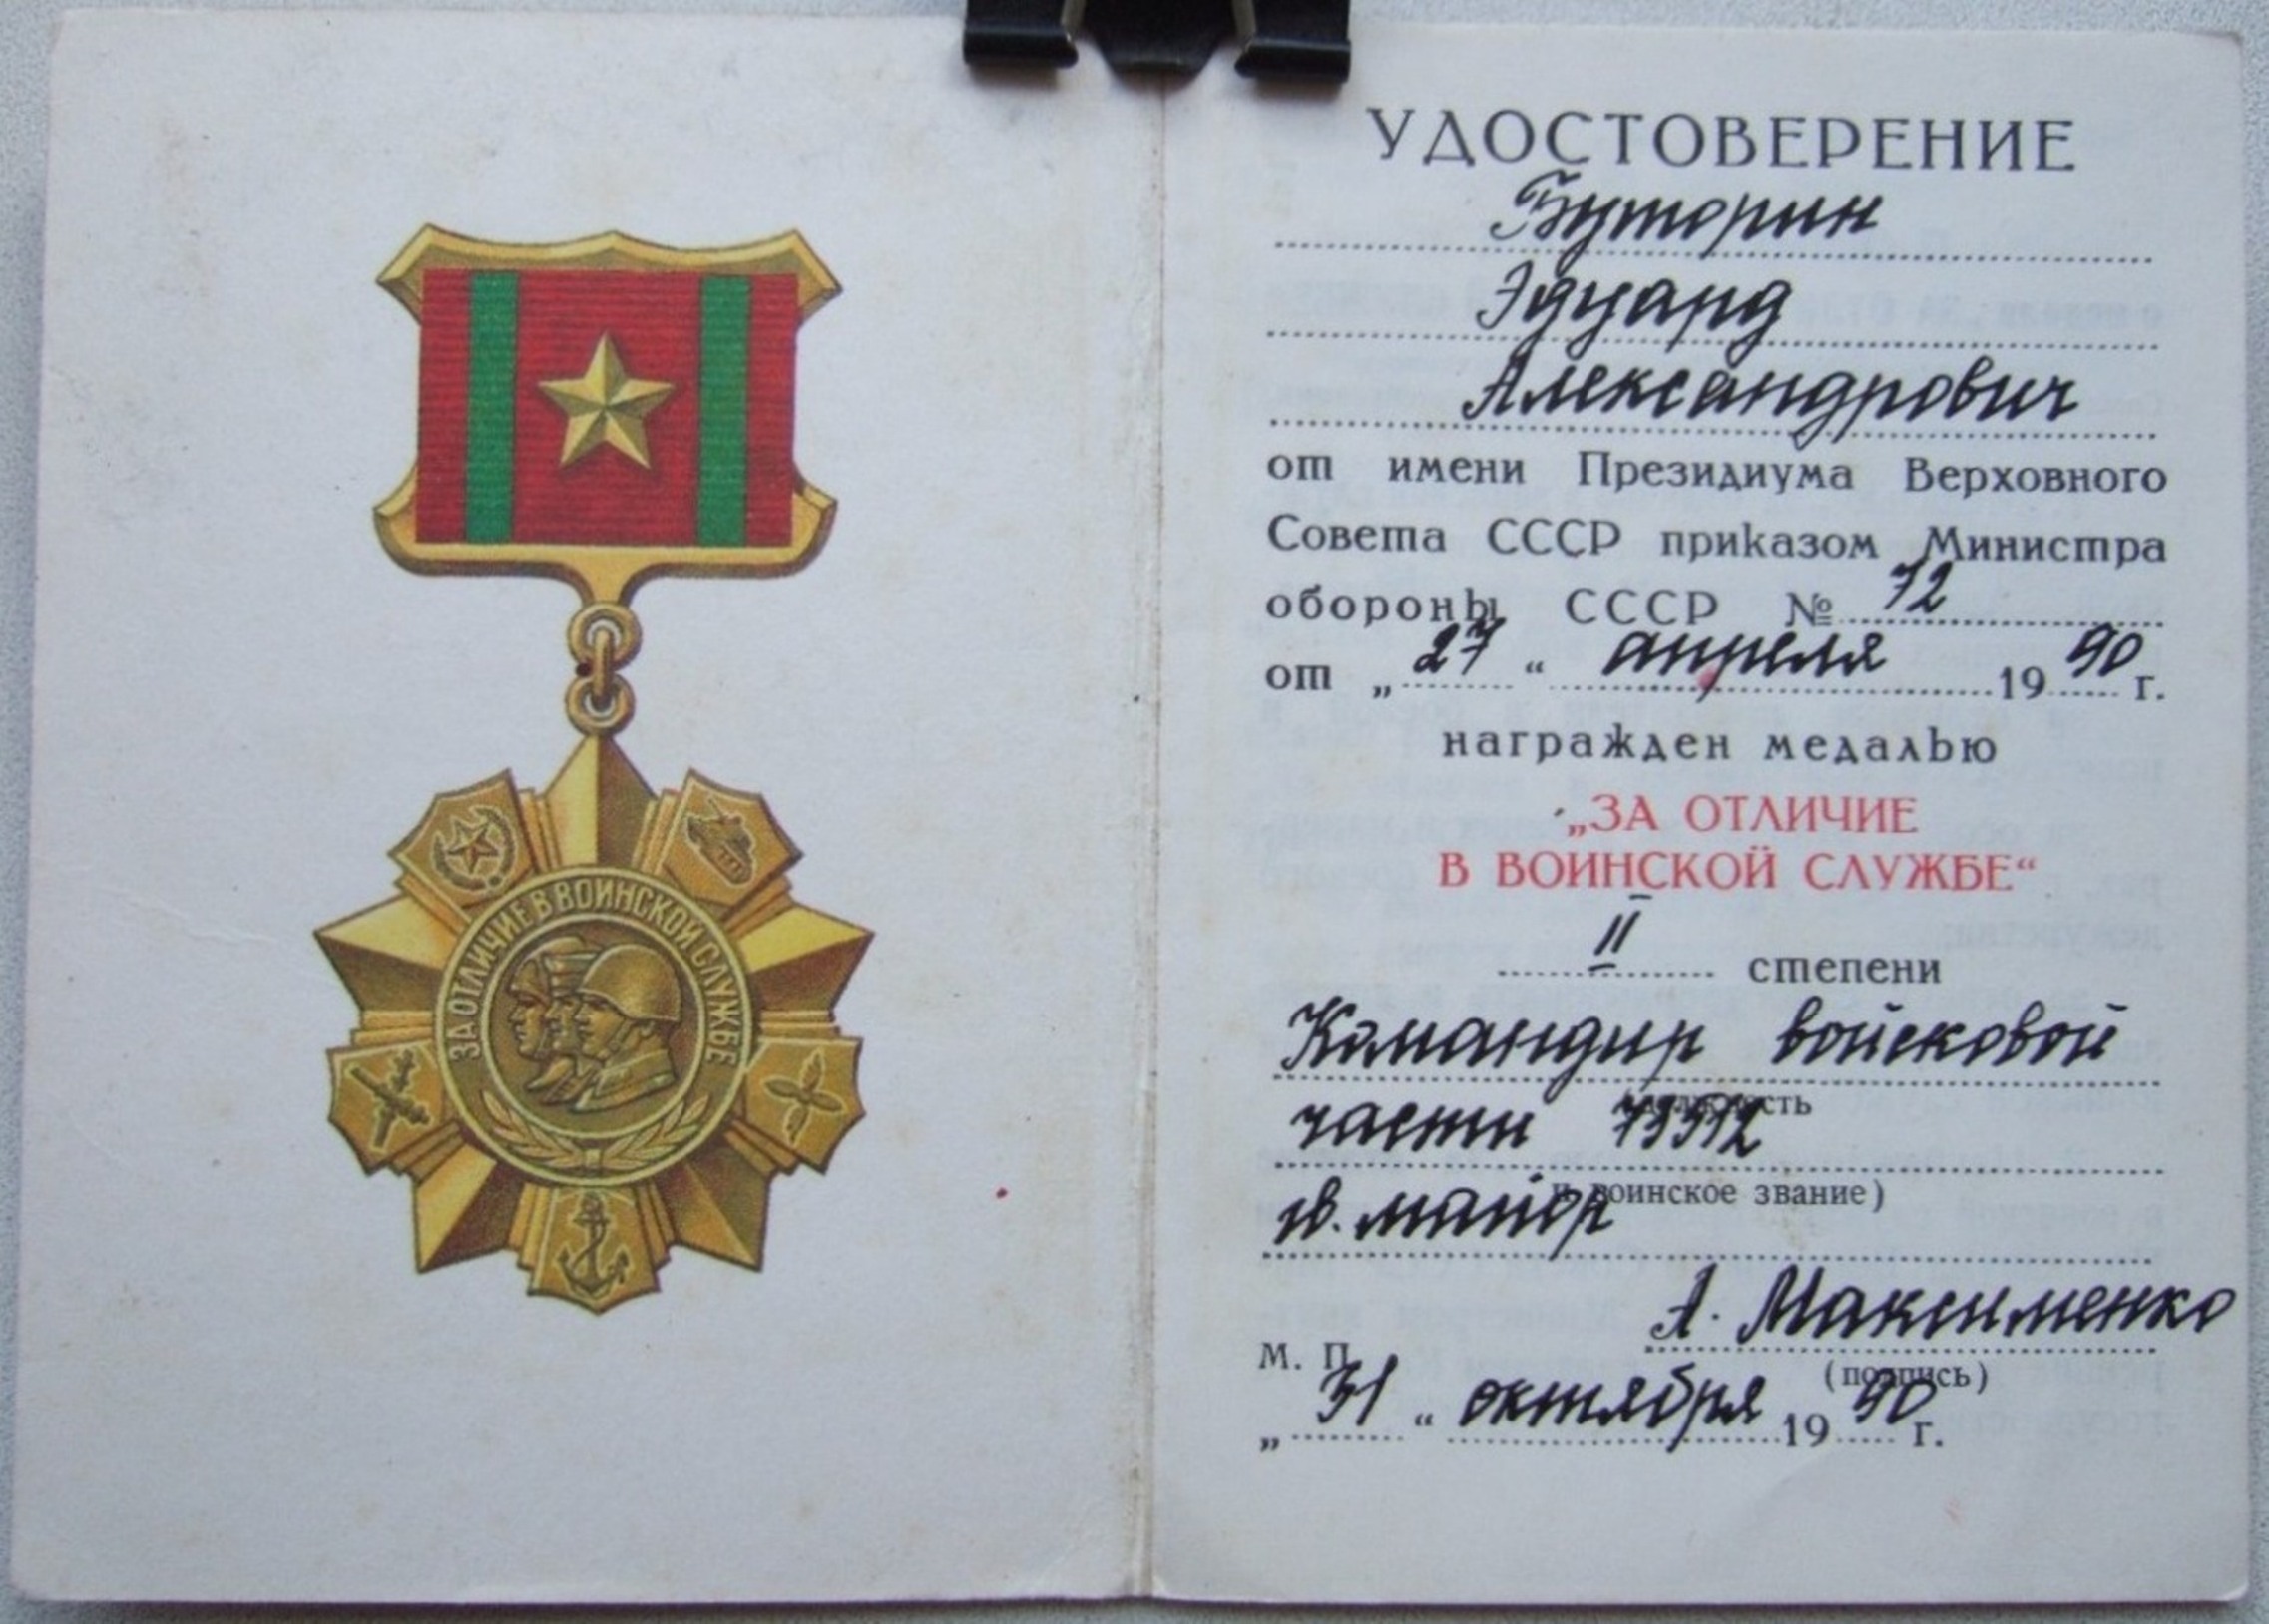 ЗА ОТЛИЧИЕ В ВОИНСКОЙ СЛУЖБЕ
УДОСТОВЕРЕНИЕ
Буторин
Эдуард
Александрович
от имени Президиума Верховного
Совета СССР приказом Министра
обороны СССР № 72
от „27“ апреля 1990 г.
награжден медалью
„ЗА ОТЛИЧИЕ
В ВОИНСКОЙ СЛУЖБЕ“
II степени
Командир войсковой
части
воинское звание)
гв. майор
А. Максименко
М. П.
(подпись)
„31“ октября 1990 г.